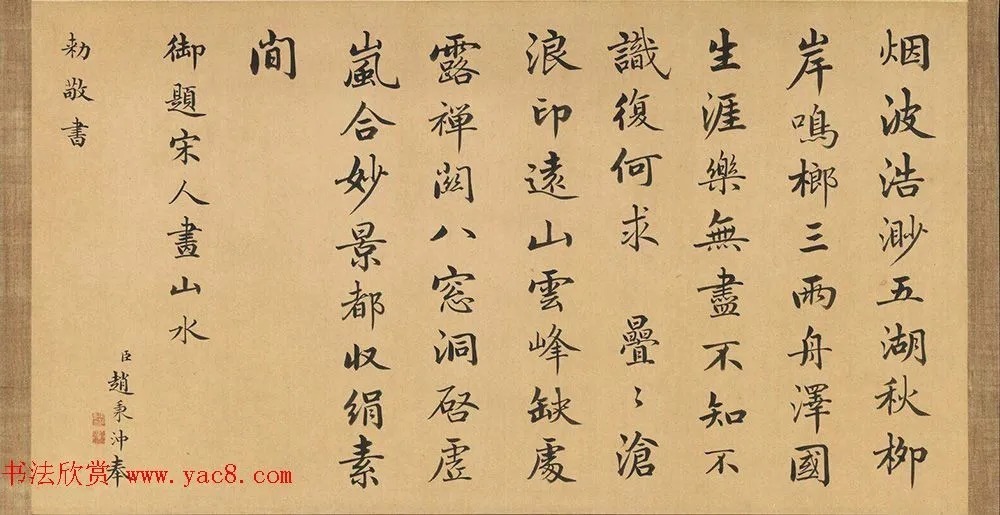 烟波浩渺五湖秋柳
岸鳴榔三兩舟澤國
生涯樂無盡不知不
識復何求 疊〻滄
浪印遠山雲峰缺處
露禅闗八窓洞啓虛
嵐合妙景都收絹素
間
御題宋人畫山水
臣趙秉沖奉
勅敬書
书法欣赏 www.yac8.com